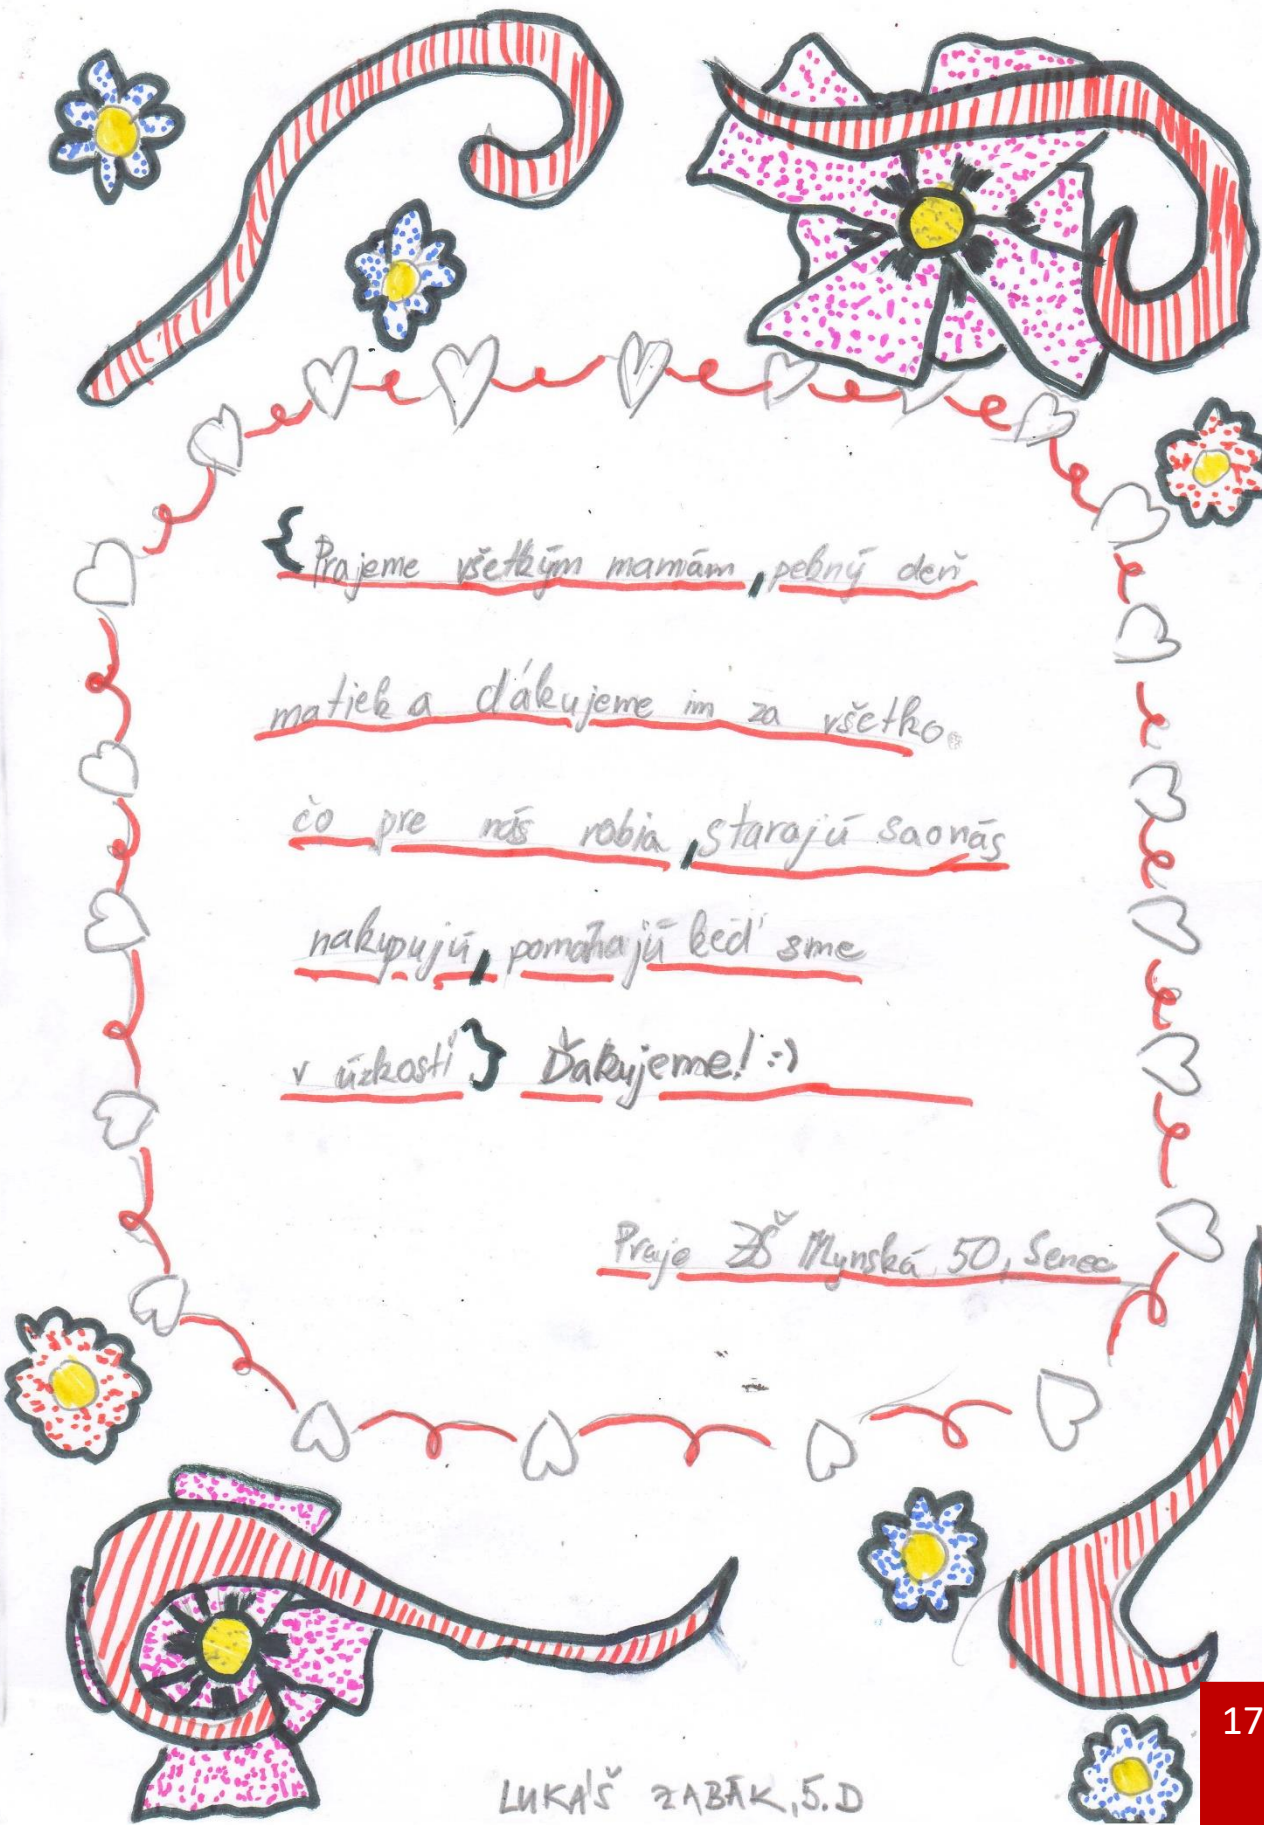 {Prajeme všetkým mamám, pekný deň
matiek a ďakujeme im za všetko.
čo pre nás robia, starajú sa o nás
nakupujú, pomáhajú keď sme
v úzkosti} Ďakujeme! :)
Praje ZŠ Mlynská 50, Senec
17
LUKÁŠ ZABÁK, 5.D